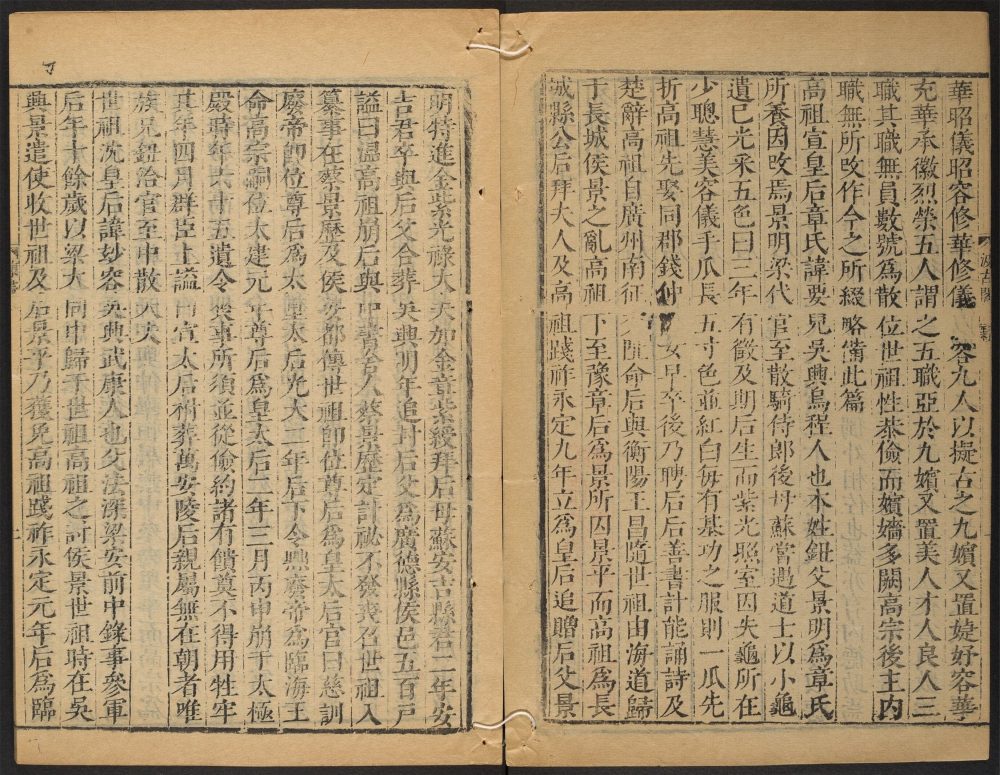 華昭儀昭容修華修儀修容九人以擬古之九嬪又置婕妤容華
充華承徽烈榮五人謂之五職亞於九嬪又置美人才人良人三
職其職無員數號爲散位世祖性恭儉而嬪嬙多闕高宗後主內
職無所改作今之所綴略備此篇
高祖宣皇后章氏諱要兒吳興烏程人也本姓鈕父景明爲章氏
所養因改焉景明梁代官至散騎侍郎後母蘇嘗遇道士以小龜
遺己光采五色曰三年有徵及期后生而紫光照室因失龜所在
少聰慧美容儀手爪長五寸色並紅白每有朞功之服則一爪先
折高祖先娶同郡錢仲女早卒後乃聘后后善書計能誦詩及
楚辭高祖自廣州南征交阯命后與衡陽王昌隨世祖由海道歸
于長城侯景之亂高祖下至豫章后爲景所囚景平而高祖爲長
城縣公后拜夫人及高祖踐祚永定元年立爲皇后追贈后父景
明特進金紫光祿大夫加金章紫綬拜后母蘇安吉縣君二年安
吉君卒與后父合葬吳興明年追封后父爲廣德縣侯邑五百戸
謚曰溫高祖崩后與中書舍人蔡景歷定計祕不發喪召世祖入
纂事在蔡景歷及侯安都傳世祖卽位尊后爲皇太后宮曰慈訓
廢帝卽位尊后爲太皇太后光大二年后下令黜廢帝爲臨海王
命高宗嗣位太建元年尊后爲皇太后二年三月丙申崩于太極
殿時年六十五遺令喪事所須並從儉約諸有饋奠不得用牲牢
其年四月群臣上謚曰宣太后祔葬萬安陵后親屬無在朝者唯
族兄鈕洽官至中散大夫
世祖沈皇后諱妙容吳興武康人也父法深梁安前中錄事參軍
后年十餘歲以梁大同中歸于世祖高祖之討侯景世祖時在吳
興景遣使收世祖及后景平乃獲免高祖踐祚永定元年后爲臨